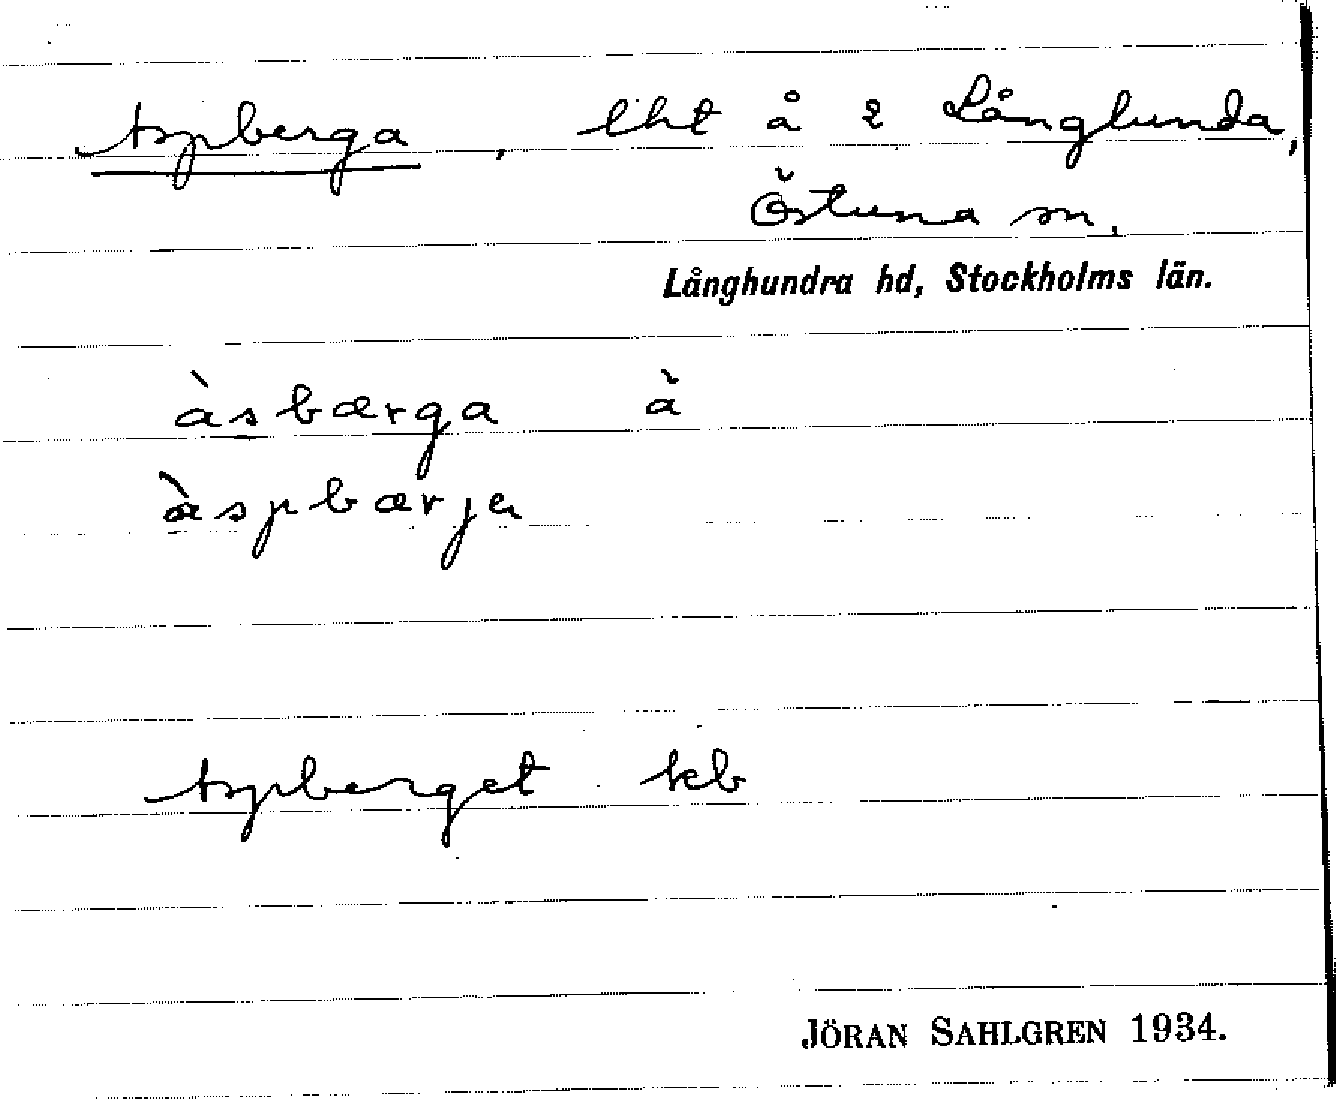 Aspberga, lht å 2 Långlunda,
Östuna sn.
Långhundra hd, Stockholms län.
àsbærga à
àspbærja
Aspberget kb
JÖRAN SAHLGREN 1934.